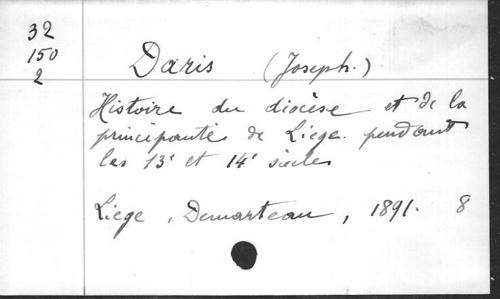 32
150
2
Daris (Joseph.)
Histoire du diocèse et de la
principauté de Liege. pendant
les 13e et 14e siècles
Liege, Demarteau, 1891. 8